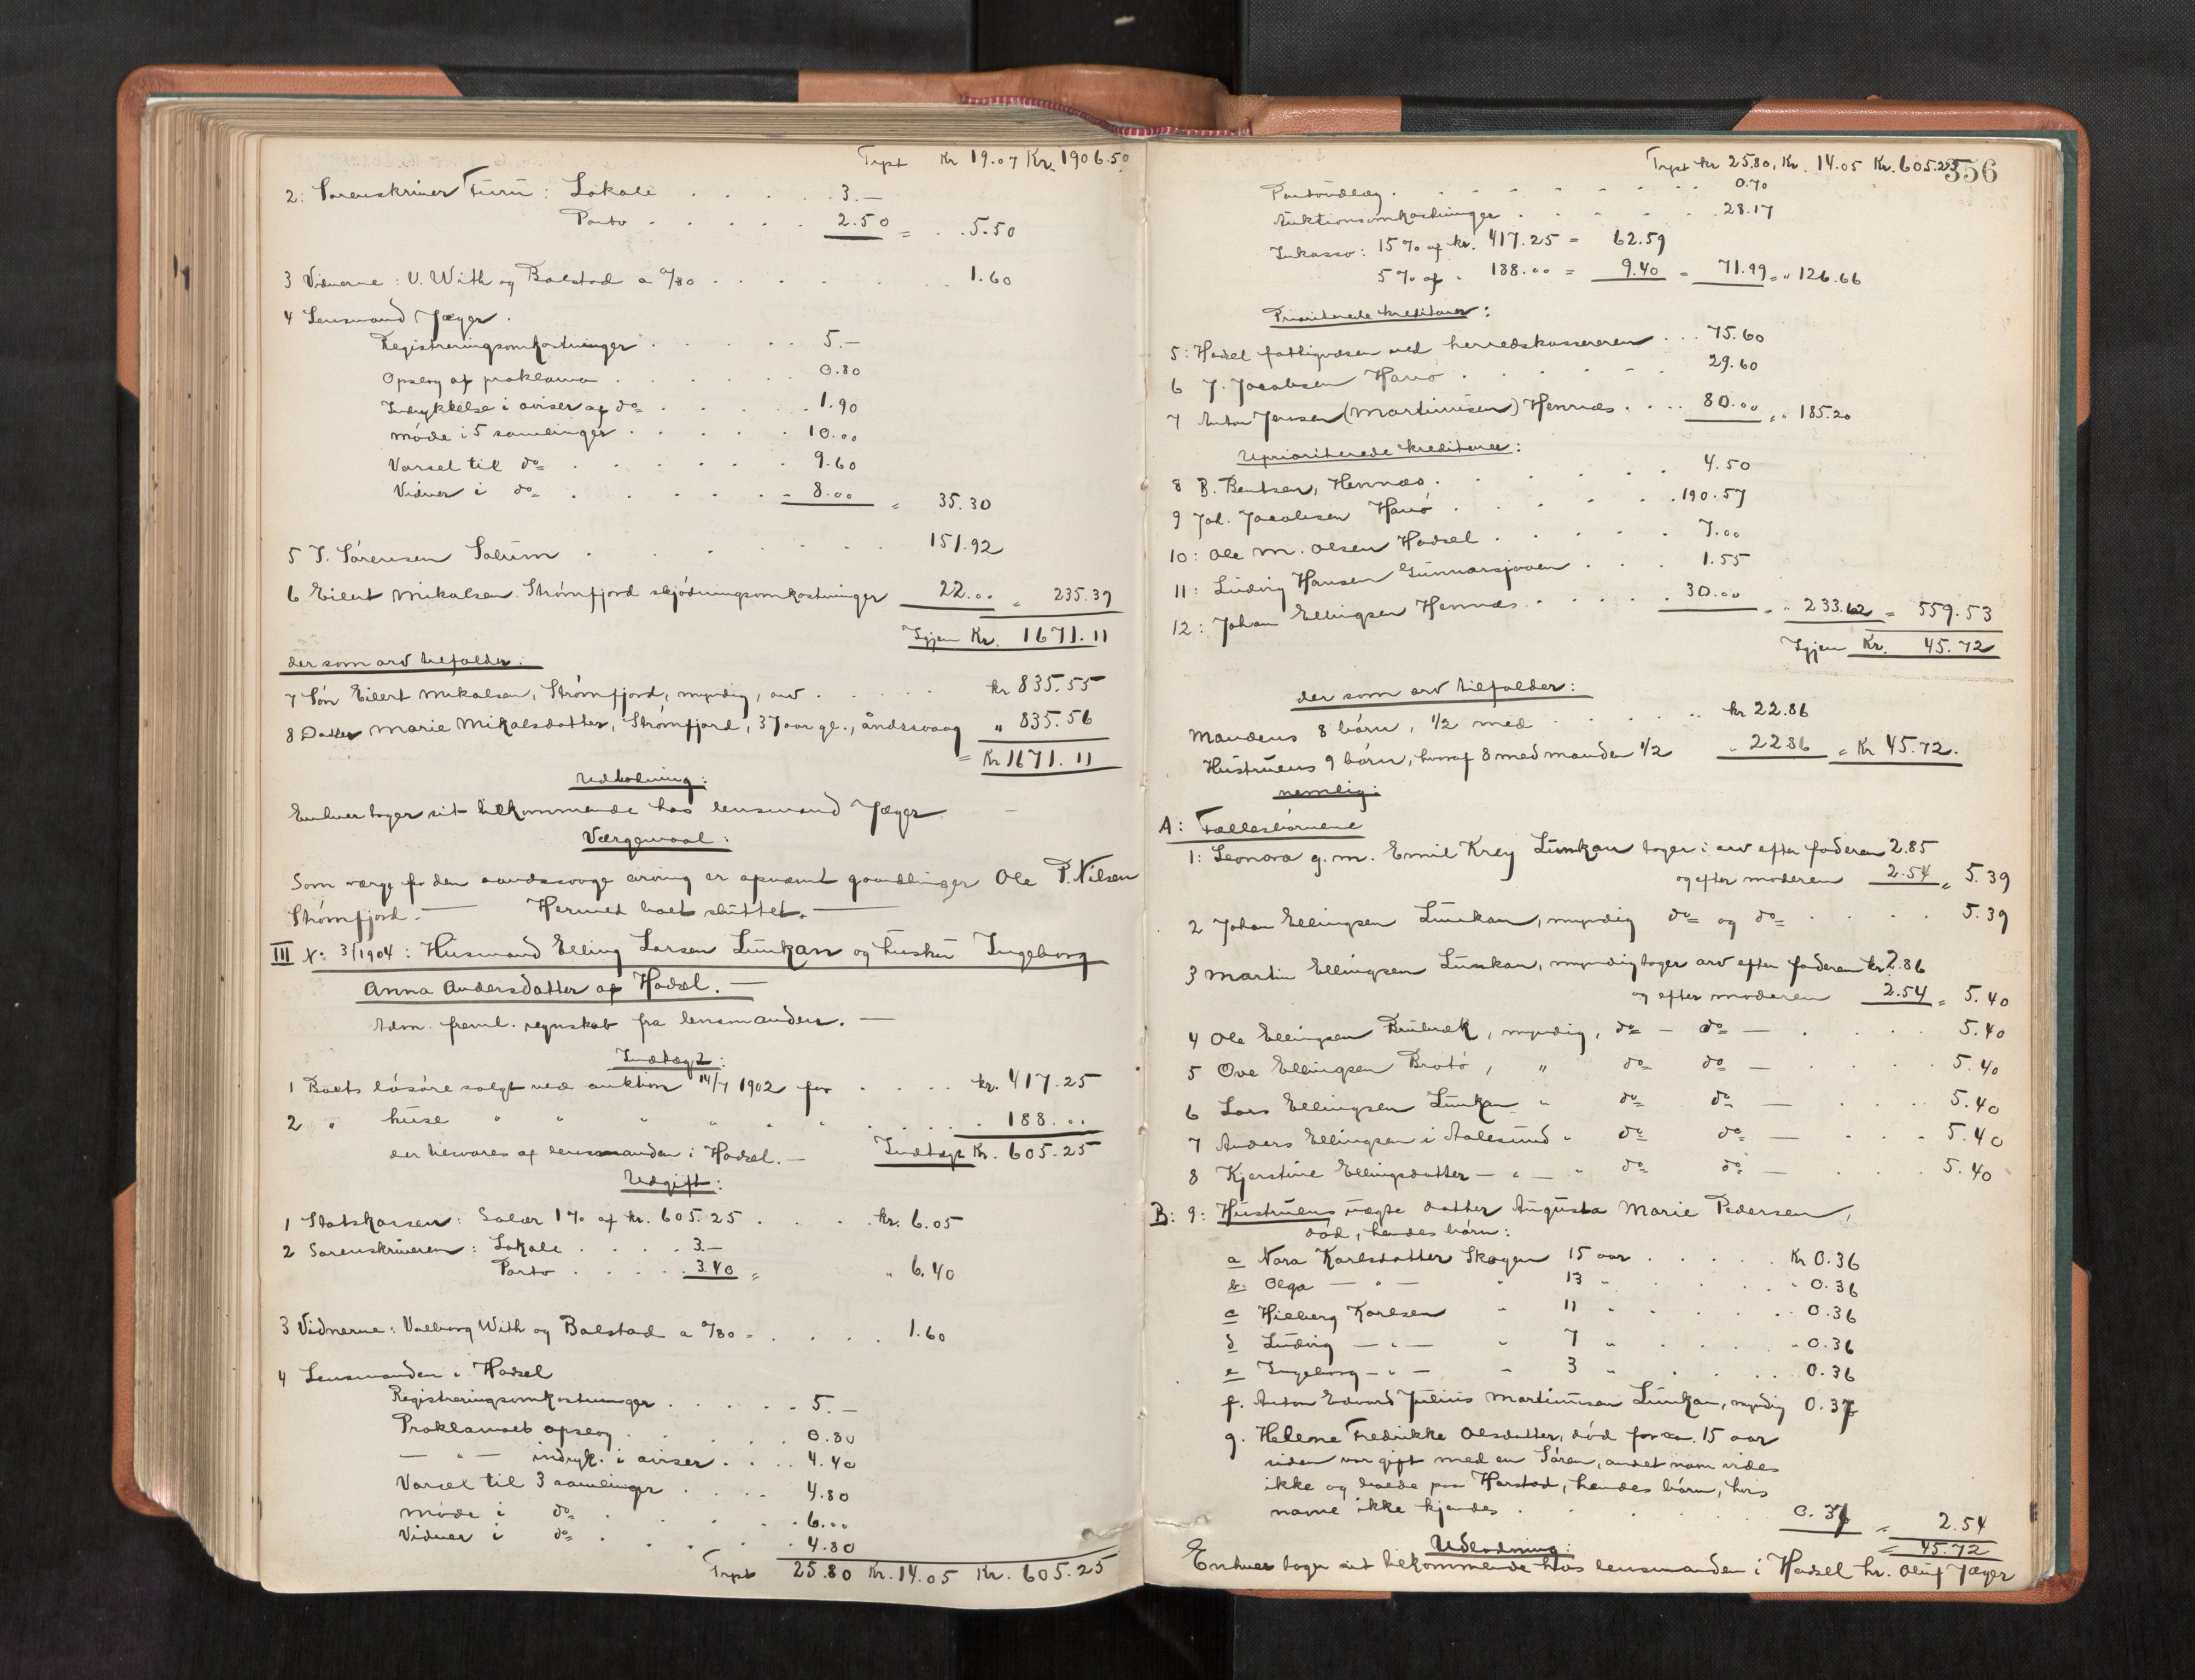 Trpt Kr 19.07 Kr. 1906.50
2: Sorenskriver Furu: Lokale . . . . . 3.—
Porto . . . . . 2.50 = . . 5.50
3 Vidnerne: V. With og Balstad a 0/80 . . . . . . . 1.60
4 Lensmand Jæger.
Registreringsomkostninger . . . . . 5.—
Opslag af proklama . . . . . 0.80
Indrykkelse i aviser af do . . . . . 1.90
møde i 5 samlinger . . . . . 10.00
Varsel til do . . . . . 9.60
Vidner i do . . . . . 8.00 = 35.30
5 T. Sørensen Solum . . . . . . 151.92
6 Eilert Mikalsen Strømfjord skjødningsomkostninger 22.00 = 235.39
Igjen Kr. 1671.11
der som arv tilfalder:
7 Søn Eilert Mikalsen, Strømfjord, myndig, arv . . . . . kr 835.55
8 Datter Marie Mikalsdatter, Strømfjord, 37 aar gl., åndssvag " 835.56
= Kr 1671.11
Udlodning:
Enhver tager sit tilkommende hos lensmand Jæger —
Værgemaal:
Som værge for den aandssvage arving er opnævnt gaardbruger Ole P. Nilsen
Strømfjord. — Hermed boet sluttet. —
III No 3/1904: Husmand Elling Larsen Lunkan og hustru Ingeborg
Anna Andersdatter af Hadsel. —
Adm. freml. regnskab fra lensmanden. —
Indtægt:
1 Boets løsøre solgt ved auktion 14/7 1902 for . . . . kr. 417.25
2 " huse " " " " " " . . . . 188.00
der besvares af lensmanden i Hadsel. — Indtægt Kr. 605.25
Udgift:
1 Statskassen: Salær 1% af kr. 605.25 . . . . kr. 6.05
2 Sorenskriveren: Lokale . . . . 3.—
Porto . . . . . 3.40 = " 6.40
3 Vidnerne: Valborg With og Balstad a 0/80 = . . . . 1.60
4 Lensmanden i Hadsel
Registreringsomkostninger . . . . . 5.—
Proklamaets opslag . . . . . 0.80
— " — indryk. i aviser . . . . 4.40
Varsel til 3 samlinger . . . . 4.80
møde i do . . . . . 6.00
Vidner i do . . . . . 4.80
Trpt 25.80 Kr. 14.05 Kr. 605.25
Trpt kr 25.80, Kr. 14.05 Kr. 605.25
356
Portoudlæg . . . . . . . . 0.70
Auktionsomkostninger . . . . . 28.17
Inkasso: 15% af kr. 417.25 = 62.59
5% af " 188.00 = 9.40 = 71.99 = " 126.66
Prioriterede kreditorer:
5: Hadsel fattigvæsen ved herredskassereren . . . 75.60
6 J. Jacobsen Haüø . . . . . . 29.60
7 Anton Jensen (Martinusen) Hennæs . . . . 80.00 = " 185.20
Uprioriterede kreditorer:
8 B. Bentsen, Hennæs . . . . . . 4.50
9 Joh. Jacobsen Haüø . . . . . . 190.57
10: Ole M. Olsen Hadsel . . . . . 7.00
11: Ludvig Hansen Gunnarsjoen . . . 1.55
12: Johan Ellingsen Hennæs . . . . . 30.00 = " 233.62 = 559.53
Igjen Kr. 45.72
der som arv tilfalder:
Mandens 8 børn, 1/2 med . . . . . kr 22.86
Hustruens 9 børn, hvoraf 8 med manden 1/2 " 22.86 = Kr 45.72.
nemlig:
A: Fællesbørnene
1: Leonora g. m. Emil Krey Lunkan tager i arv efter faderen 2.85
og efter moderen 2.54 = 5.39
2 Johan Ellingsen Lunkan, myndig do og do . . . . 5.39
3 Martin Ellingsen Lunkan, myndig tager arv efter faderen kr 2.86
og efter moderen 2.54 = 5.40
4 Ole Ellingsen , myndig, do — do — . . . . 5.40
5 Ove Ellingsen Brotø, " do do — . . . . 5.40
6 Lars Ellingsen Lunkan " do do — . . . . 5.40
7 Anders Ellingsen i Aalesund " do do — . . . 5.40
8 Kjerstine Ellingsdatter — " — " do do — . . . 5.40
B: 9: Hustruens uægte datter Augusta Marie Pedersen,
død, hendes børn:
a Nora Karlsdatter Skagen 15 aar . . . . . Kr 0.36
b Olga — " — " 13 " . . . . . " 0.36
c Hilberg Karlsen " 11 " . . . . . 0.36
d Ludvig — " — " 7 " . . . . . " 0.36
e Ingeborg — " — " 3 " . . . . . 0.36
f. Anton Edvard Julius Martinusen Lunkan, myndig 0.37
g. Helene Fredrikke Olsdatter, død for ca. 15 aar
siden var gift med en Søren, andet navn vides
ikke og boede paa Harstad, hendes børn, hvis
navne ikke kjendes . . . . . . 0.37 = 2.54
= 45.72
Udlodning:
Enhver tager sit tilkommende hos lensmanden i Hadsel hr. Oluf Jæger